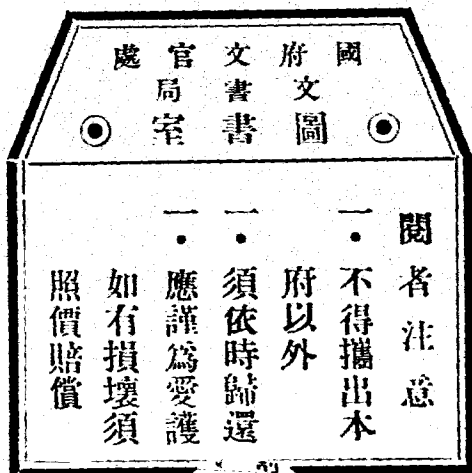 國府文官處
文書局
圖書室
閱者注意
一．不得攜出本
府以外
一．須依時歸還
一．應謹爲愛護
如有損壞須
照價賠償